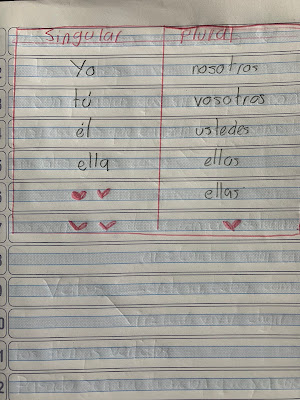 Singular plural
Yo nosotros
tú vosotros
él ustedes
ella ellos
ellas